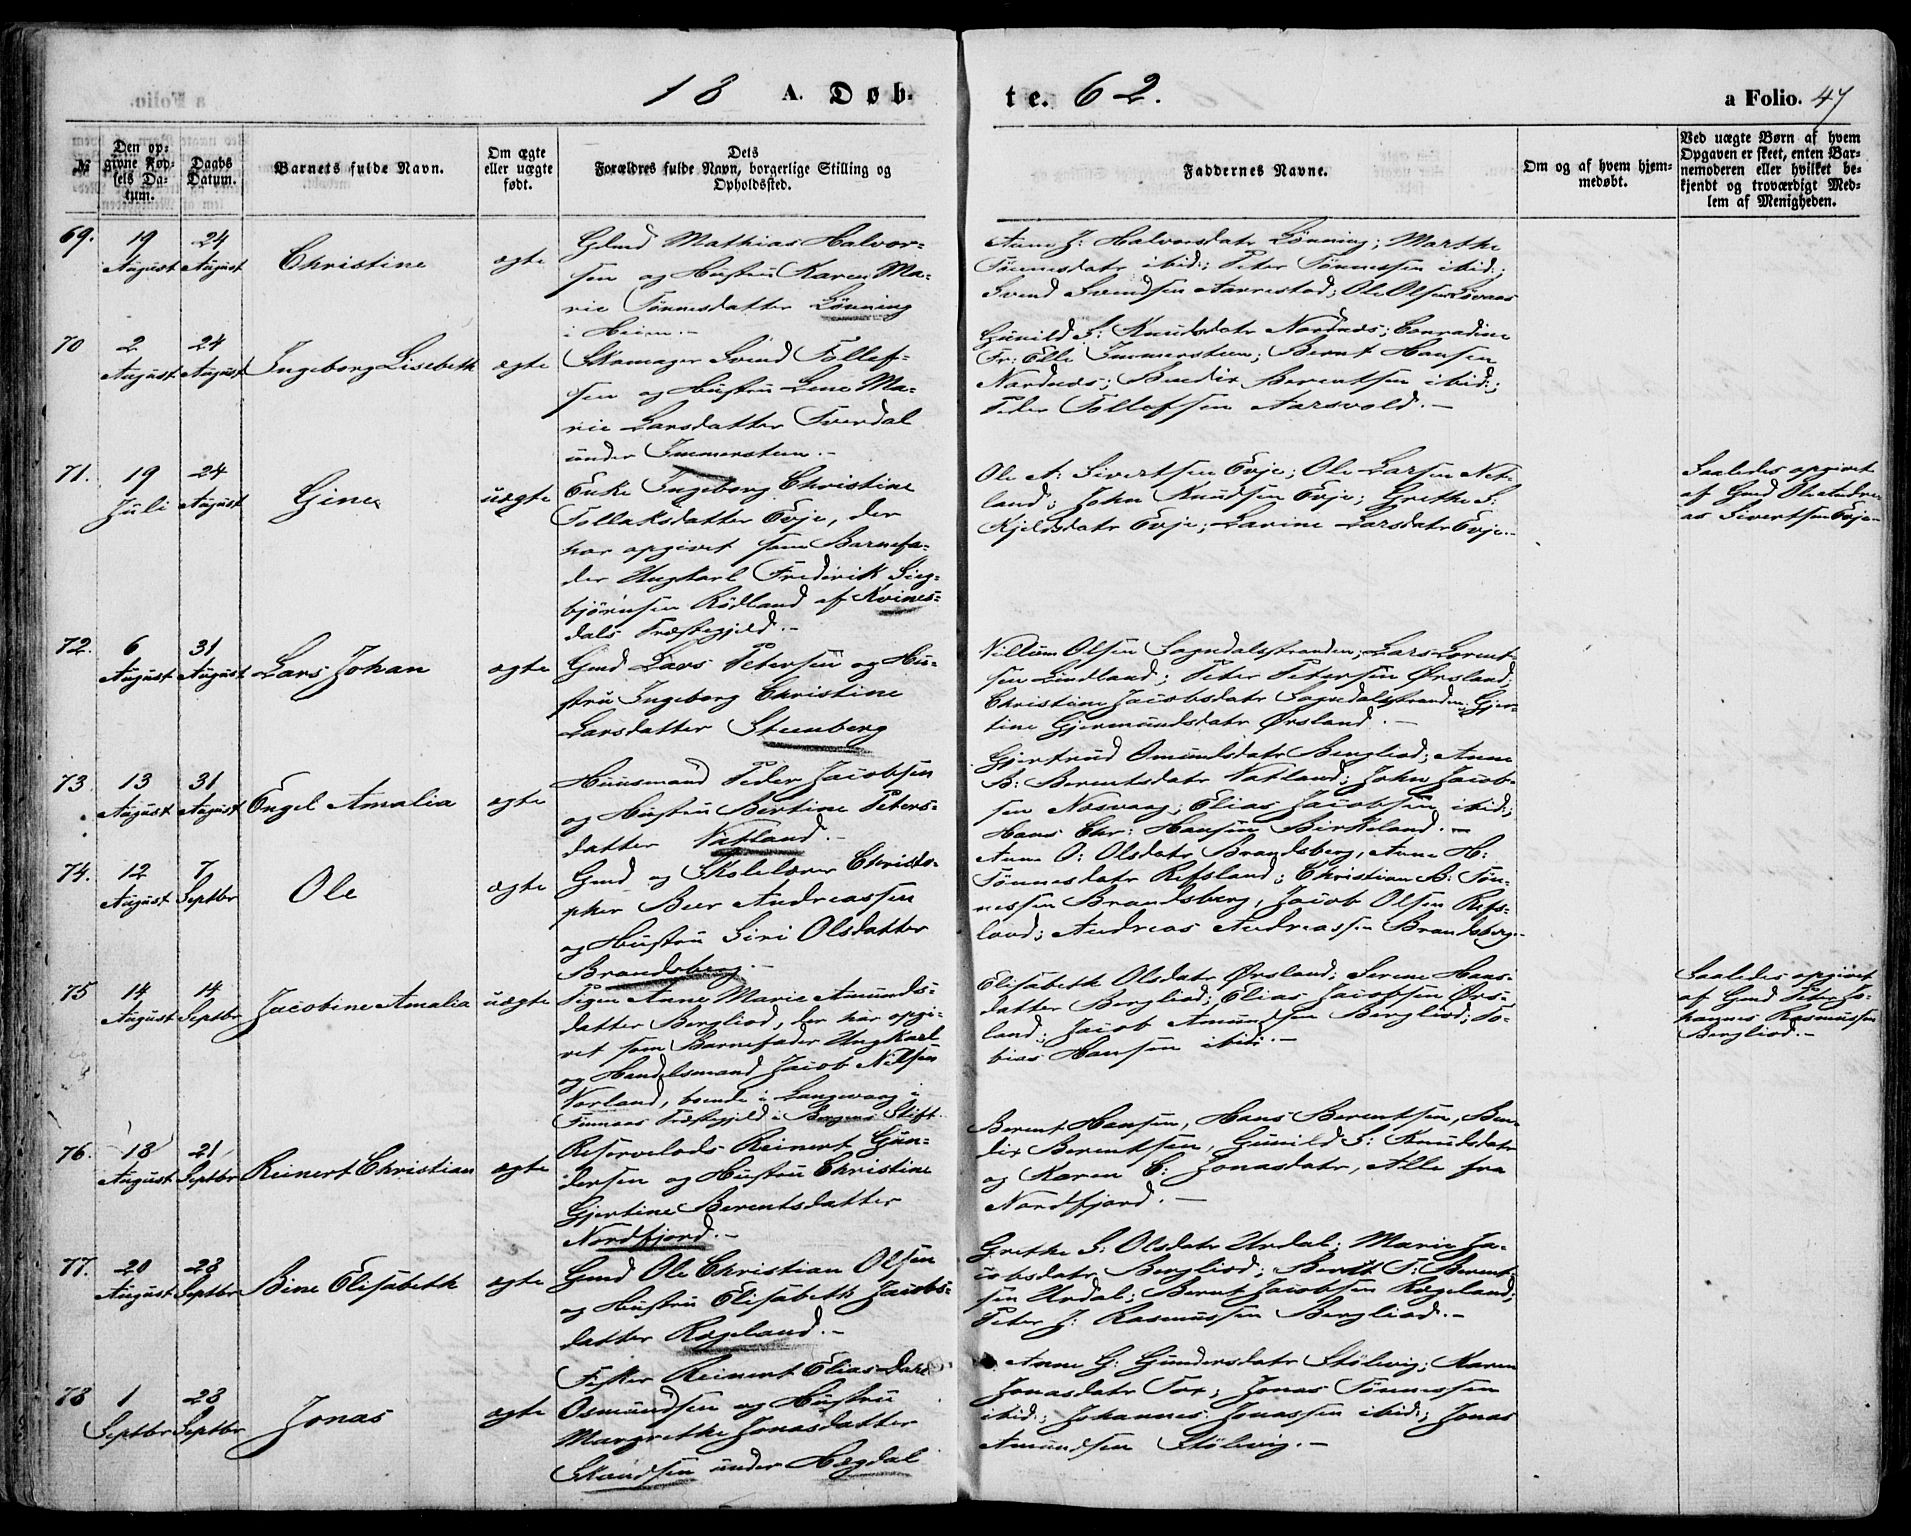 18 A. Døb-
te. 62.
a Folio. 47
№
Den op-
givne Fød-
sels Da-
tum.
Daabs
Datum.
Barnets fulde Navn.
Om ægte
eller uægte
født.
Dets
Forældres fulde Navn, borgerlige Stilling og
Opholdssted.
Faddernes Navne.
Om og af hvem hjem-
medøbt.
Ved uægte Børn af hvem
Opgaven er skeet, enten Bar-
nemoderen eller hvilket be-
kjendt og troværdigt Med-
lem af Menigheden.
69. 19 August 24 August Christine ægte
Gbmd Mathias Halvor-
sen og Hustru Karen Ma-
rie Tönnesdatter Lönning
i Heim.-
Anne J: Halvorsdatr Lönning; Marthe
Tönnesdatr ibid:; Peter Tönnessen ibid:;
Svend Svendsen Aarrestad; Ole Olsen Løvaas
70 2 August 24 August Ingeborg Lisebeth ægte
Skomager Svend Tollef-
sen og Hustru Lene Ma-
rie Larsdatter Tverdal
under Immersteen.-
Gunild S: Knudsdatr Nordnæs; Conradine
Fr: Elle Immersteen; Bernt Hansen
Nordnæs; Bendix Berentsen ibid:;
Peder Tollefsen Aarsvold.-
71. 19 Juli 24 August Gine uægte
Enke Ingeborg Christine
Tollaksdatter Evje, der
har opgivet som Barnefa-
der Ungkarl Frederik Sieg-
björnsen Rödland af Kvines-
dals Præstegjeld.-
Ole A: Sivertsen Evje; Ole Larsen Net-
land; John Knudsen Evje; Grethe S.
Kjeldsdatr Evje; Larine Larsdatr Evje.-
Saaledes opgivet
af Gmd Ole Andre-
as Sivertsen Evje-
72. 6 August 31 August Lars Johan ægte
Gmd Lars Petersen og Hu-
stru Ingeborg Christine
Larsdatter Steenberg
Villum Olsen Sogndalsstranden; Lars Lorent-
sen Lindland; Peter Petersen Ørsland;
Christine Jacobsdatr Sogndalsstranden; Gjer-
tine Gjermundsdatr Ørsland.-
73. 13 August 31 August Engel Amalia ægte
Huusmand Peder Jacobsen
og Hustru Bertine Peters-
datter Vatland.-
Gjertrud Omundsdatr Bergliod; Anne
B: Berentsdatr Vatland; John Jacob-
sen Næsvaag; Elias Jacobsen ibid:;
Hans Chr: Hansen Birkeland.-
74. 12 August 7 Septbr Ole ægte
Gmd og Skolelærer Christo-
pher Beer Andreassen
og Hustru Siri Olsdatter
Brandsberg.-
Anne O: Olsdatr Brandsberg, Anne H:
Tönnesdatr Refsland; Christian B: Tön-
nessen Brandsberg, Jacob Olsen Refs-
land; Andreas Andreassen Brandsberg.-
75 14 August 14 Septbr Jacobine Amalia uægte
Pigen Anne Marie Amunds-
datter Bergliod, der har opgi-
vet som Barnefader Ungkarl
og Handelsmand Jacob Nilsen
Norland, boende i Langevaag i
Finnaas Præstegjeld i Bergens Stift.
Elisabeth Olsdatr Ørsland; Serene Hans-
datter Bergliod; Elias Jacobsen Ørs-
land; Jacob Amundsen Bergliod; To-
bias Hansen ibid:-
Saaledes opgivet
af Gmd Peter Jo-
hannes Rasmussen
Bergliod.-
76. 18 August 21 Septbr Reinert Christian ægte
Reservelods Reinert Gun-
dersen og Hustru Christine
Gjertine Berentsdatter
Nordfjord.-
Berent Hansen, Hans Berentsen, Ben-
dix Berentsen, Gunild S: Knudsdatr
og Karen C: Jonasdatr, Alle fra
Nordfjord.-
77. 20 August 28 Septbr Bine Elisabeth ægte
Gmd Ole Christian Olsen
og Hustru Elisabeth Jacobs-
datter Rægeland.-
Grethe S: Olsdatr Urdal; Marie Ja-
cobsdatr Bergliod; Berdt T: Berent-
sen Urdal; Bernt Jacobsen Rægeland;
Peter J: Rasmussen Bergliod.-
78 1 Septbr 28 Septbr Jonas ægte
Fisker Reinert Elias
Osmundsen og Hustru
Margrethe Jonasdatter
Skaudsen under Hægdal
Anne G: Gundersdatr Stölevig; Karen
Jonasdatr Tox; Jonas Tönnessen
ibid:; Johannes Jonassen ibid:; Jonas
Amundsen Stölevig.-